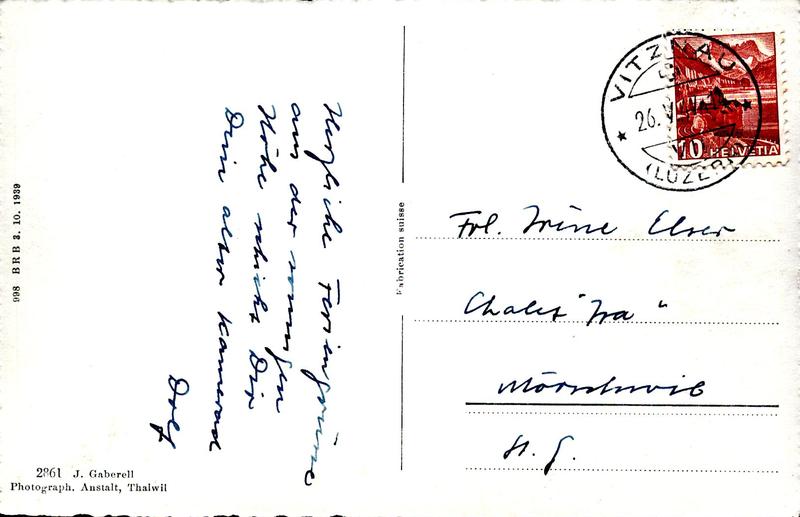 Herzliche Feriengrüsse
aus der sonnigen
Höhe schickt Dir
Dein alter Kamerad
Dolf
VITZNAU
26.
(LUZERN)
10 HELVETIA
Frl. Irène Elser
Chalet "Ira"
Mörschwil
St. G.
Fabrication suisse
998 BRB 3. 10. 1939
2861 J. Gaberell
Photograph. Anstalt, Thalwil